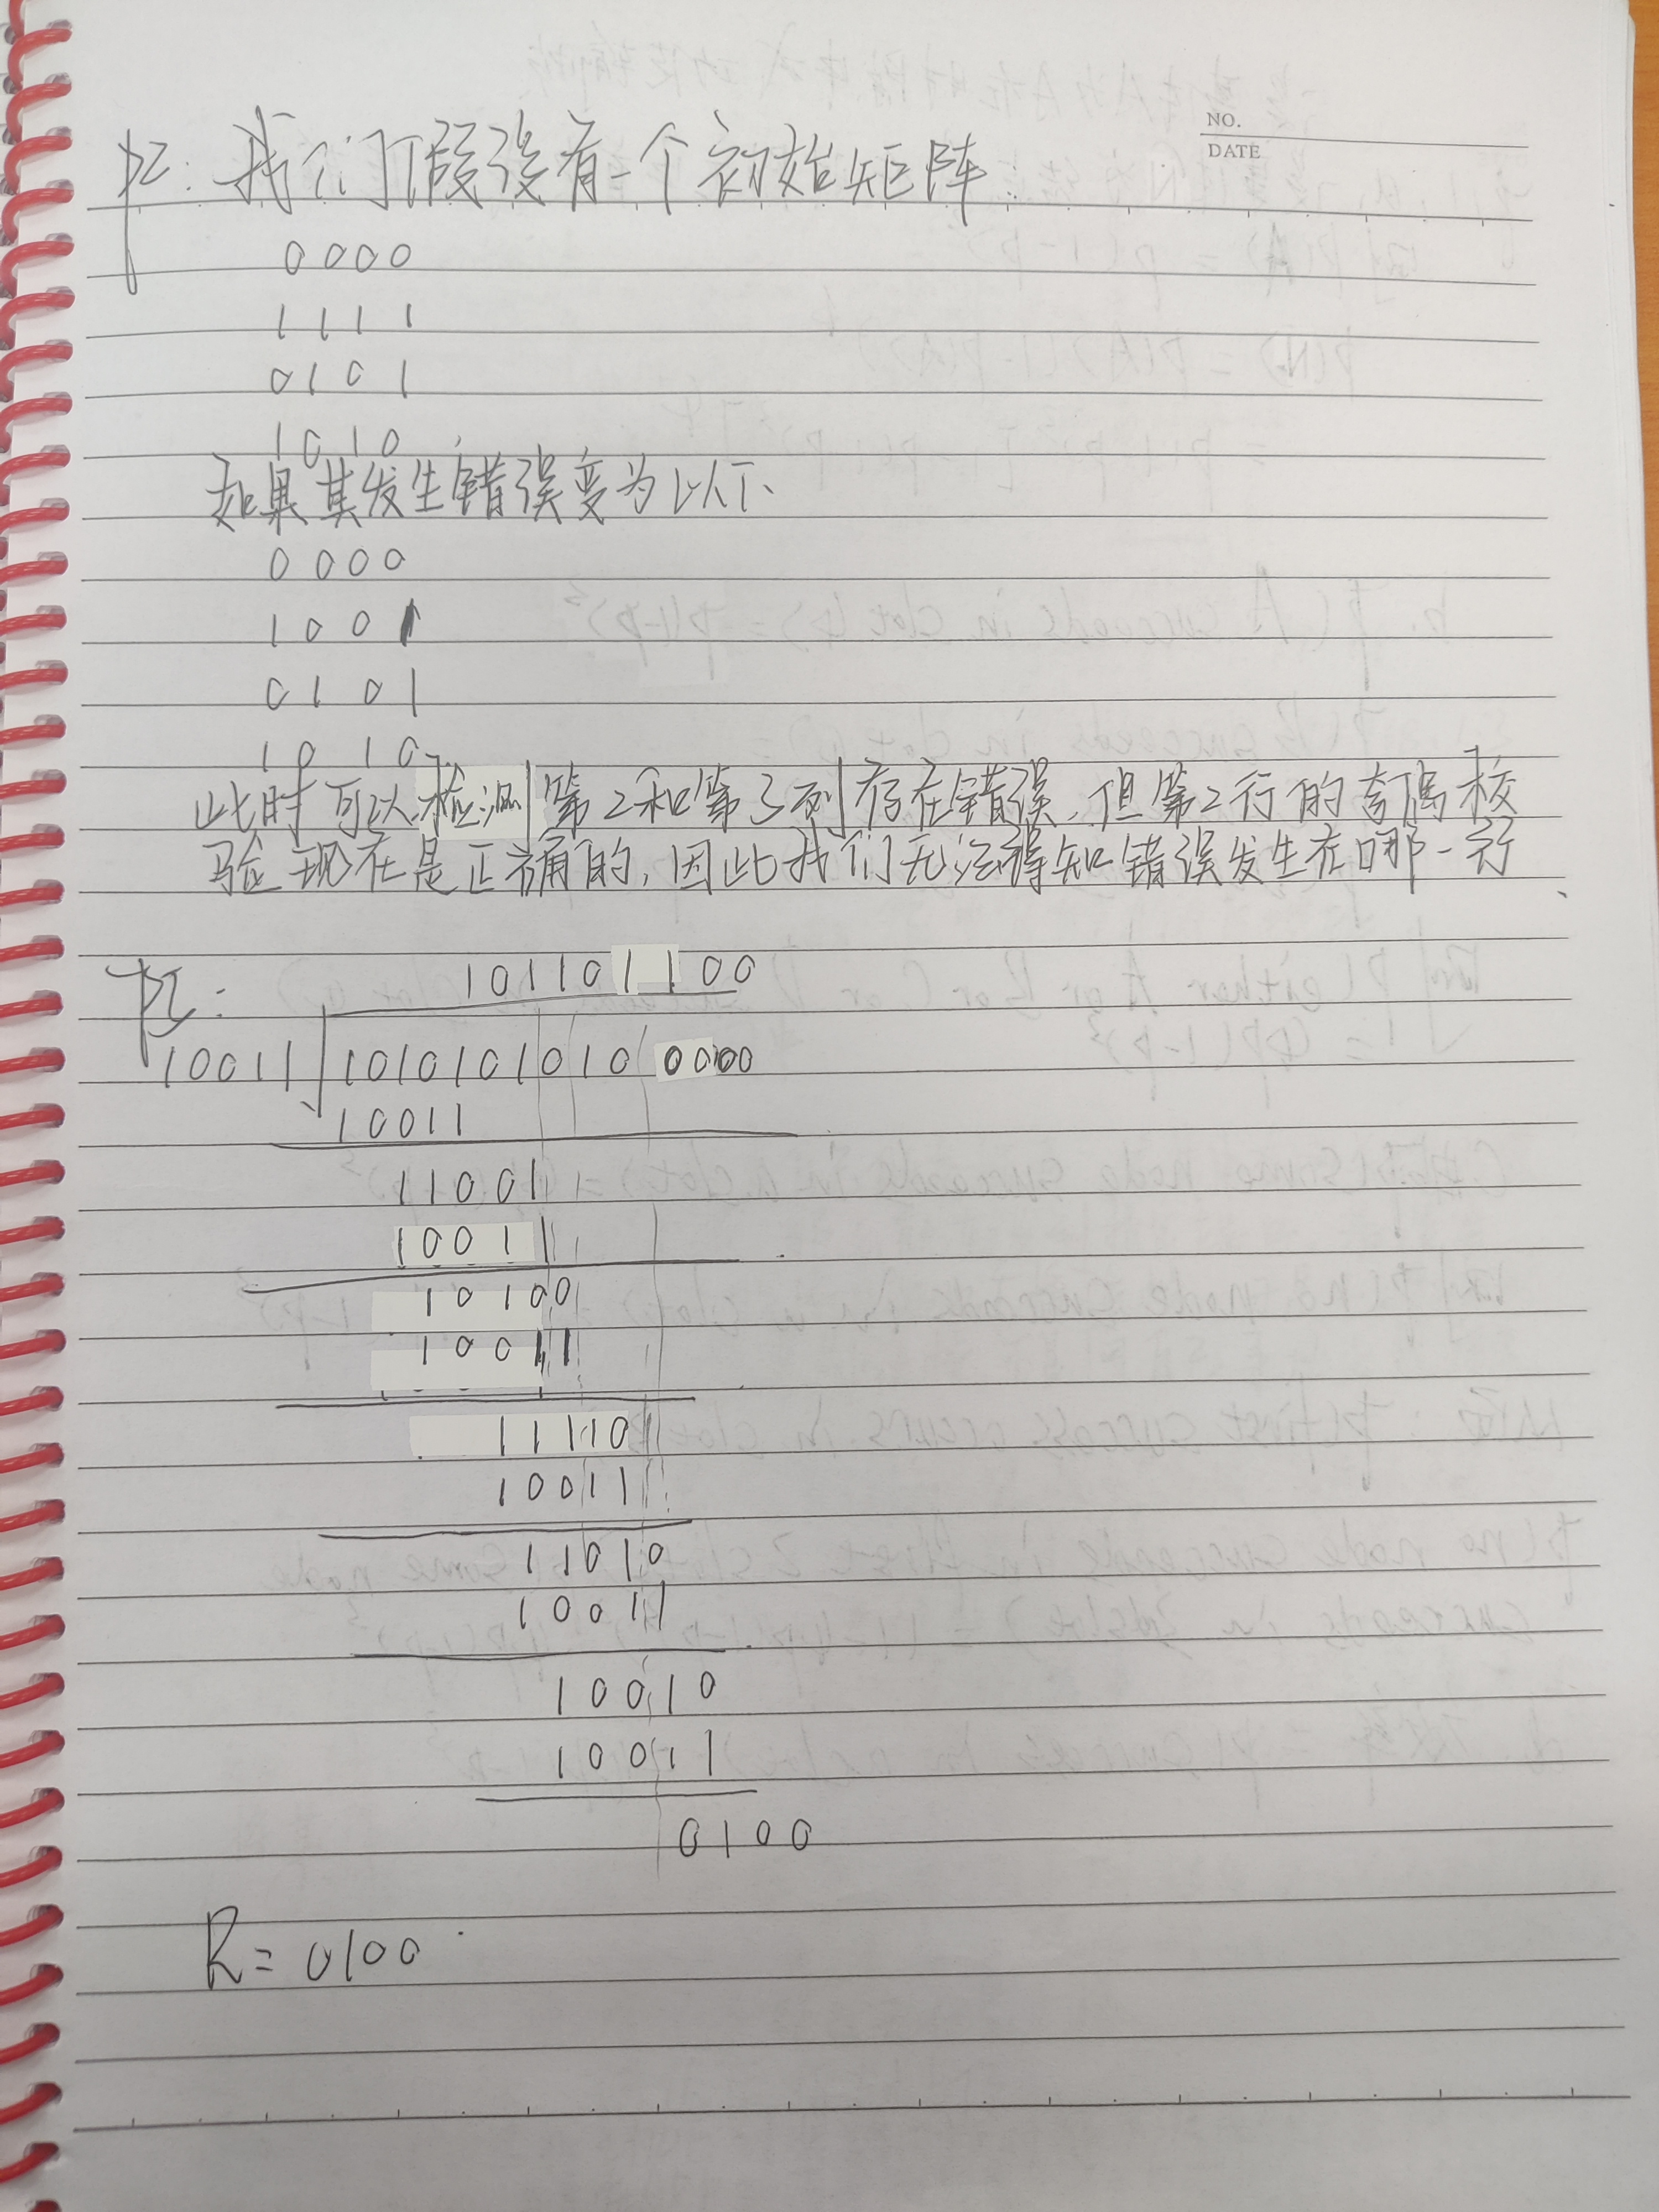 NO.
DATE
P2: 我们假设有一个初始矩阵:
0000
1111
0101
1010
如果其发生错误变为以下
0000
1001
0101
1010
此时可以检测第2和第3列存在错误,但第2行的奇偶校
验现在是正确的,因此我们无法得知错误发生在哪一行
101101100
10011 10101010100000
10011
11001
10011
10100
10011
11110
10011
11010
10011
10010
10011
0100
R=0100